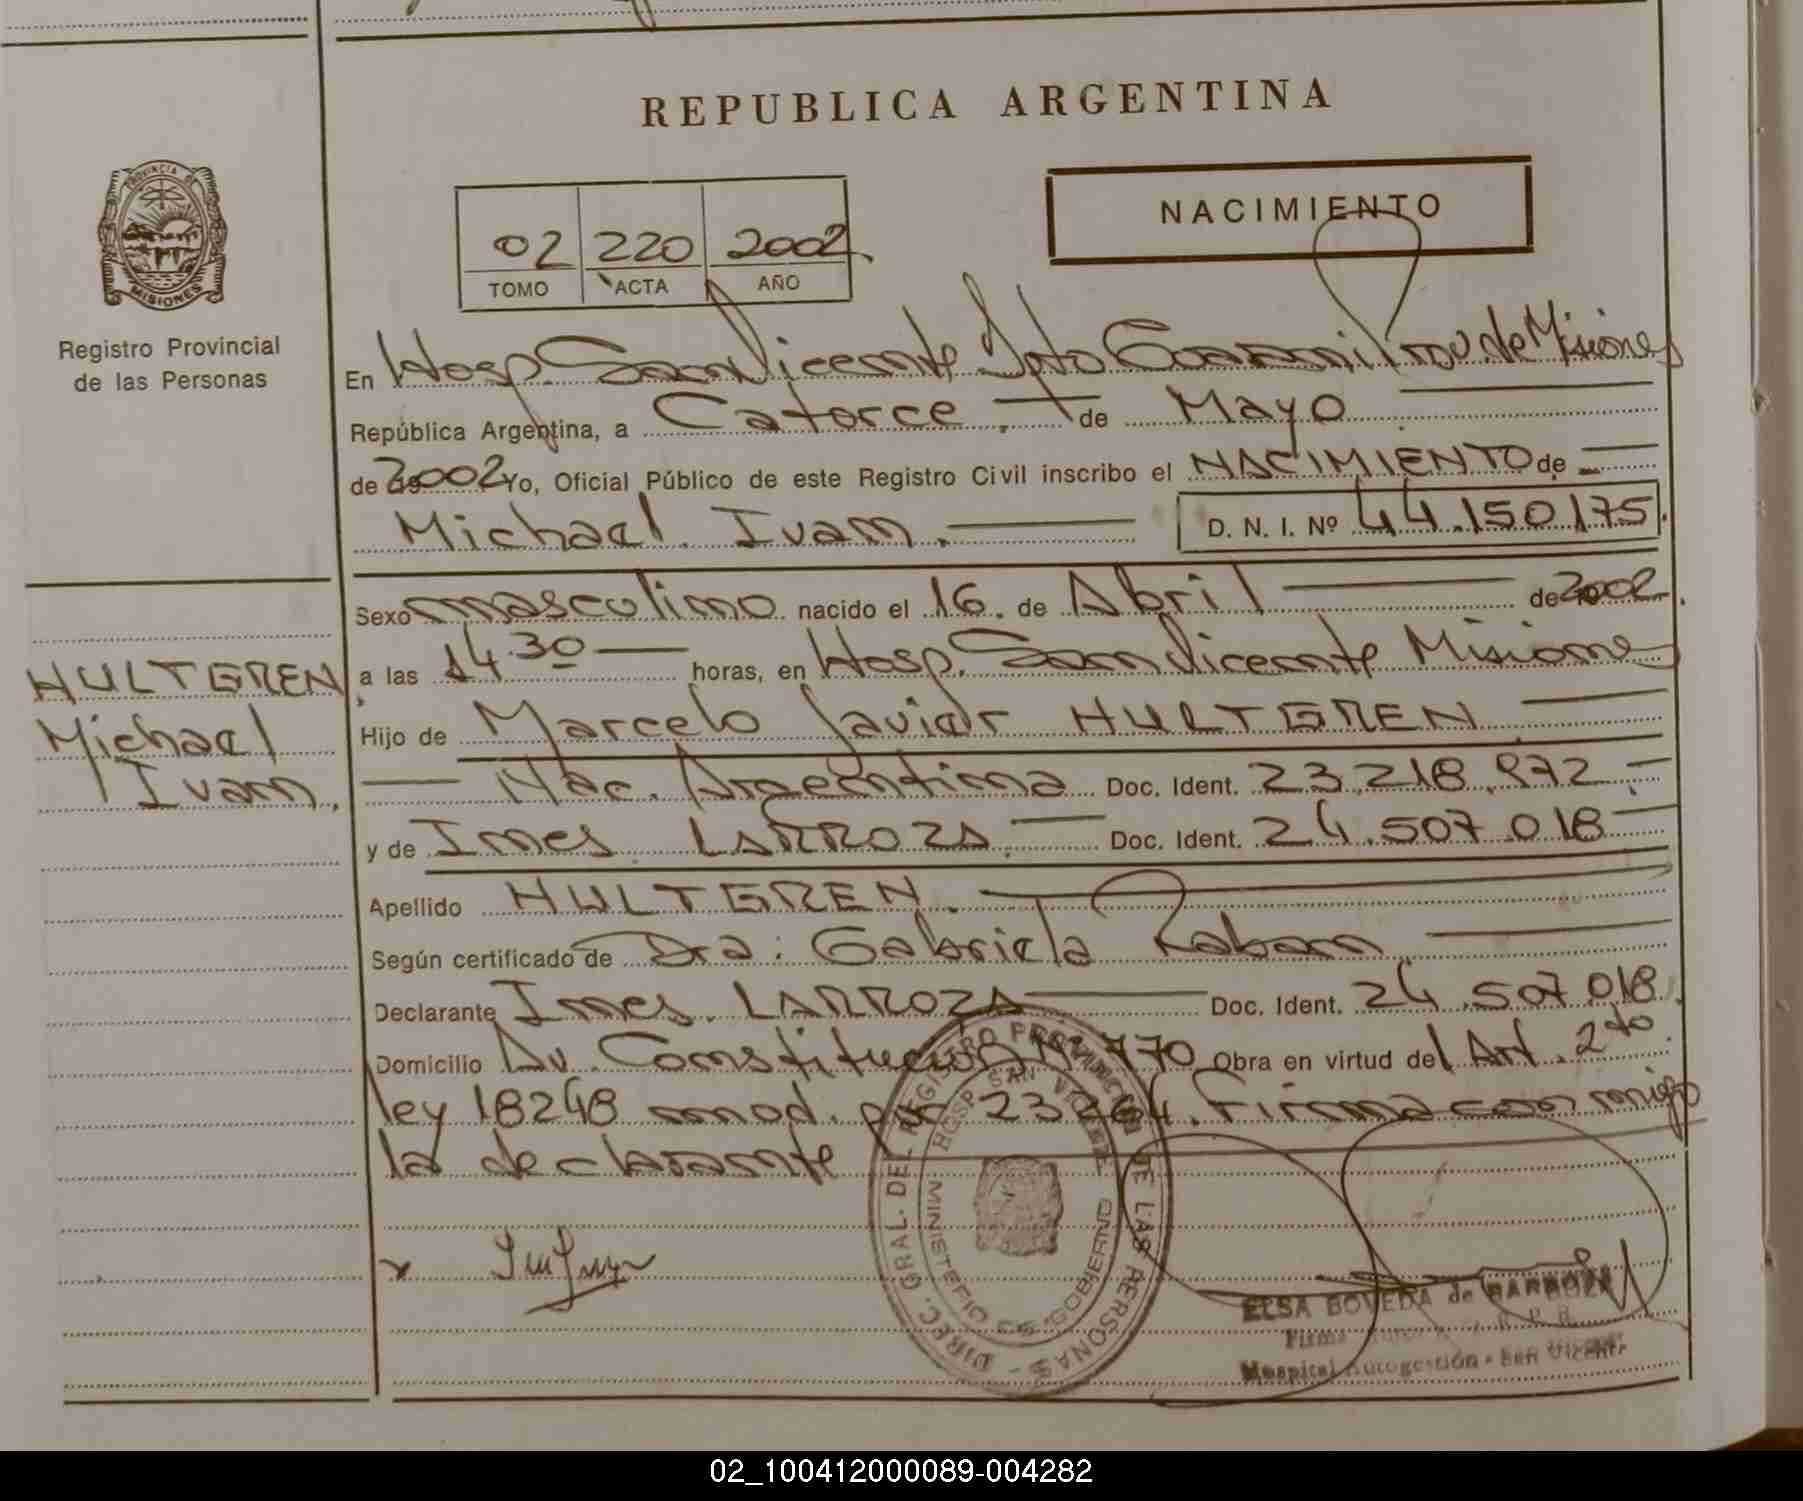 REPUBLICA ARGENTINA
PROVINCIA DE
MISIONES
Registro Provincial
de las Personas
NACIMIENTO
02 220 2002
TOMO ACTA AÑO
En Hosp. San Vicente Dpto Guaraní de Misiones
República Argentina, a Catorce. de Mayo
de 2002 Yo, Oficial Público de este Registro Civil inscribo el NACIMIENTO de
Michael Ivan. D. N. I. Nº 44.150175
Sexo masculino nacido el 16. de Abril de 2002.
a las 14.30 horas, en Hosp. San Vicente Misiones
Hijo de Marcelo Javier HULTGREN
Nac. Argentina Doc. Ident. 23.218.972
y de Ines LARROZA. Doc. Ident. 24.507.018
Apellido HULTGREN.
Según certificado de Dra: Gabriela Raban
Declarante Ines. LARROZA Doc. Ident. 24.507018.
Domicilio Av. Constitución Nº 770 Obra en virtud del Art. 2do
ley 18248 mod. por 23264. Firma conmigo
la declarante
HULTGREN
Michael
Ivan.
DIREC. GRAL. DEL REGISTRO PROVINCIAL DE LAS PERSONAS
HOSP. SAN VICENTE
MINISTERIO DE GOBIERNO
ELSA BOVEDA de BARBOZA
Firma
Hospital Autogestión - San Vicente
02_100412000089-004282